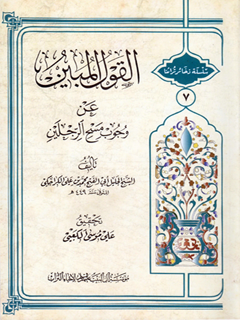 سلسلة ذخائر تراثنا
٧
القول المبين
عن
وجوب مسح الرجلين
تأليف
الشيخ الجليل أبي الفتح محمد بن علي الكراجكي
المتوفى سنة ٤٤٩ هـ
تحقيق
علي موسى الكعبي
مؤسسة آل البيت عليهم السلام لإحياء التراث